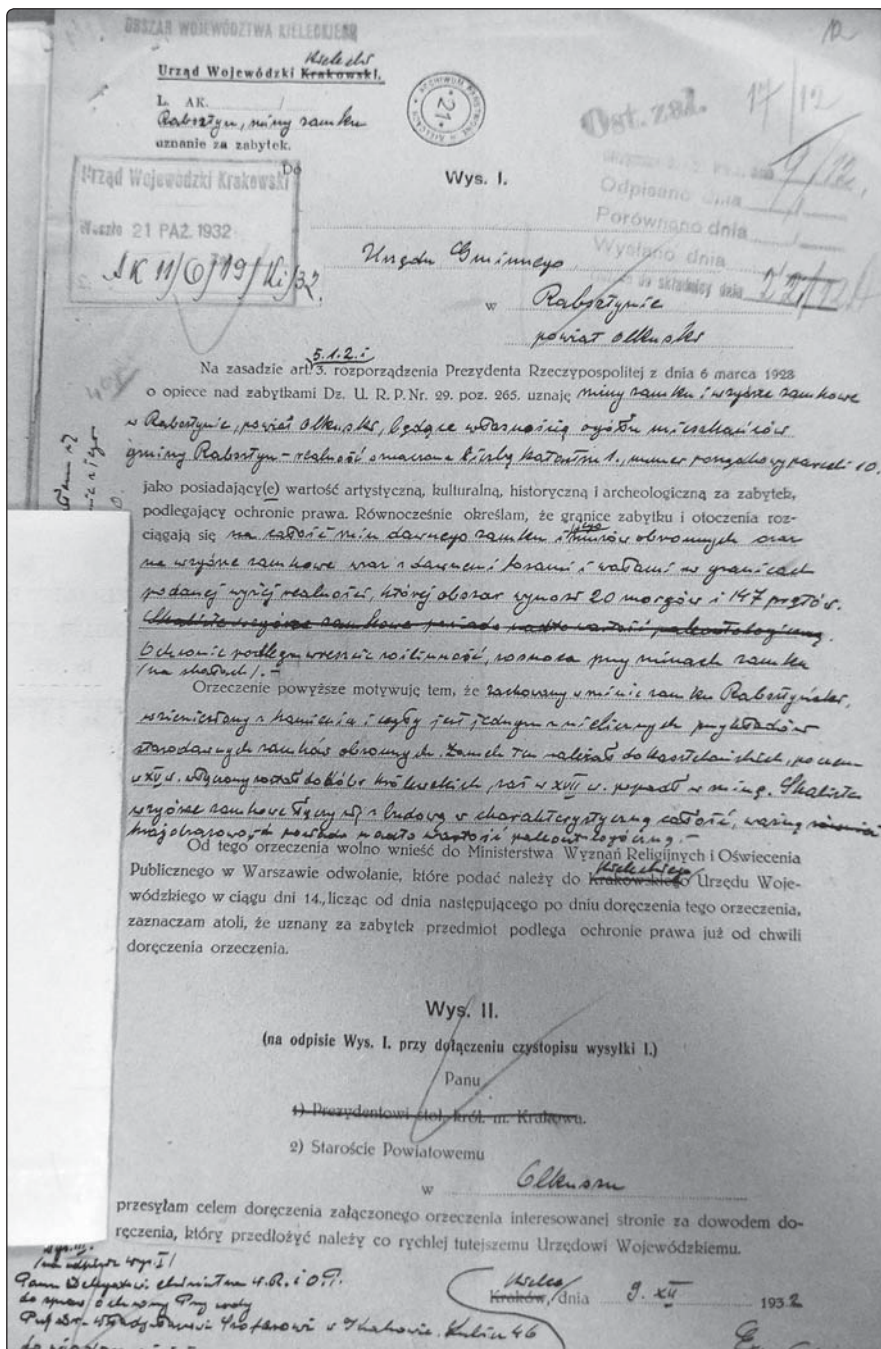 OBSZAR WOJEWÓDZTWA KIELECKIEGO
12
Kielecki
Urząd Wojewódzki Krakowski.
L. AK. /
Rabsztyn, ruiny zamku
uznanie za zabytek.
ARCHIWUM PAŃSTWOWE W KIELCACH
21
Ost. zał. 17/12
9/12
Odpisano dnia
Porównano dnia
Wysłano dnia
do składnicy dnia 22/12
Urząd Wojewódzki Krakowski
Weszło 21 PAŹ. 1932
AK 11/6/19/Ki/32.
Do
Wys. I.
Urzędu Gminnego
w Rabsztynie
powiat olkuski
5.1.2.i
Na zasadzie art. 3. rozporządzenia Prezydenta Rzeczypospolitej z dnia 6 marca 1928
o opiece nad zabytkami Dz. U. R. P. Nr. 29. poz. 265. uznaję ruiny zamku i wzgórze zamkowe
w Rabsztynie, powiat Olkuski, będące własnością ogółu mieszkańców
gminy Rabsztyn – realność oznaczona liczbą katastr. 1., numer porządkowy parceli 10.
jako posiadający(e) wartość artystyczną, kulturalną, historyczną i archeologiczną za zabytek,
podlegający ochronie prawa. Równocześnie określam, że granice zabytku i otoczenia roz-
ciągają się na całość ruin dawnego zamku i jego murów obronnych oraz
na wzgórze zamkowe wraz z dawnemi fosami i wałami w granicach
podanej wyżej realności, której obszar wynosi 20 morgów i 147 prętów.
Skaliste wzgórze zamkowe posiada nadto wartość paleontologiczną.
Ochronie podlega wreszcie roślinność, rosnąca przy ruinach zamku
/na skałach/. –
Orzeczenie powyższe motywuję tem, że zachowany w ruinie zamek Rabsztyński,
wzniesiony z kamienia i cegły jest jednym z nielicznych przykładów
starodawnych zamków obronnych. Zamek ten należał do kasztelańskich, poczem
w XV w. włączony został do dóbr królewskich, zaś w XVII w. popadł w ruinę. Skaliste
wzgórze zamkowe łączy się z budową w charakterystyczną całość, ważną
krajobrazowo, posiada nadto wartość paleontologiczną. –
Od tego orzeczenia wolno wnieść do Ministerstwa Wyznań Religijnych i Oświecenia
Publicznego w Warszawie odwołanie, które podać należy do Krakowskiego Kieleckiego Urzędu Woje-
wódzkiego w ciągu dni 14., licząc od dnia następującego po dniu doręczenia tego orzeczenia,
zaznaczam atoli, że uznany za zabytek przedmiot podlega ochronie prawa już od chwili
doręczenia orzeczenia.
Wys. II.
(na odpisie Wys. I. przy dołączeniu czystopisu wysyłki I.)
Panu
1) Prezydentowi stoł. król. m. Krakowa.
2) Staroście Powiatowemu
w Olkuszu
przesyłam celem doręczenia załączonego orzeczenia interesowanej stronie za dowodem do-
ręczenia, który przedłożyć należy co rychlej tutejszemu Urzędowi Wojewódzkiemu.
Wys. III.
/na odpisie wys. I/
Panu Delegatowi Ministra W.R. i O.P.
do spraw ochrony Przyrody
Kielce
Kraków, dnia 9. XII 1932